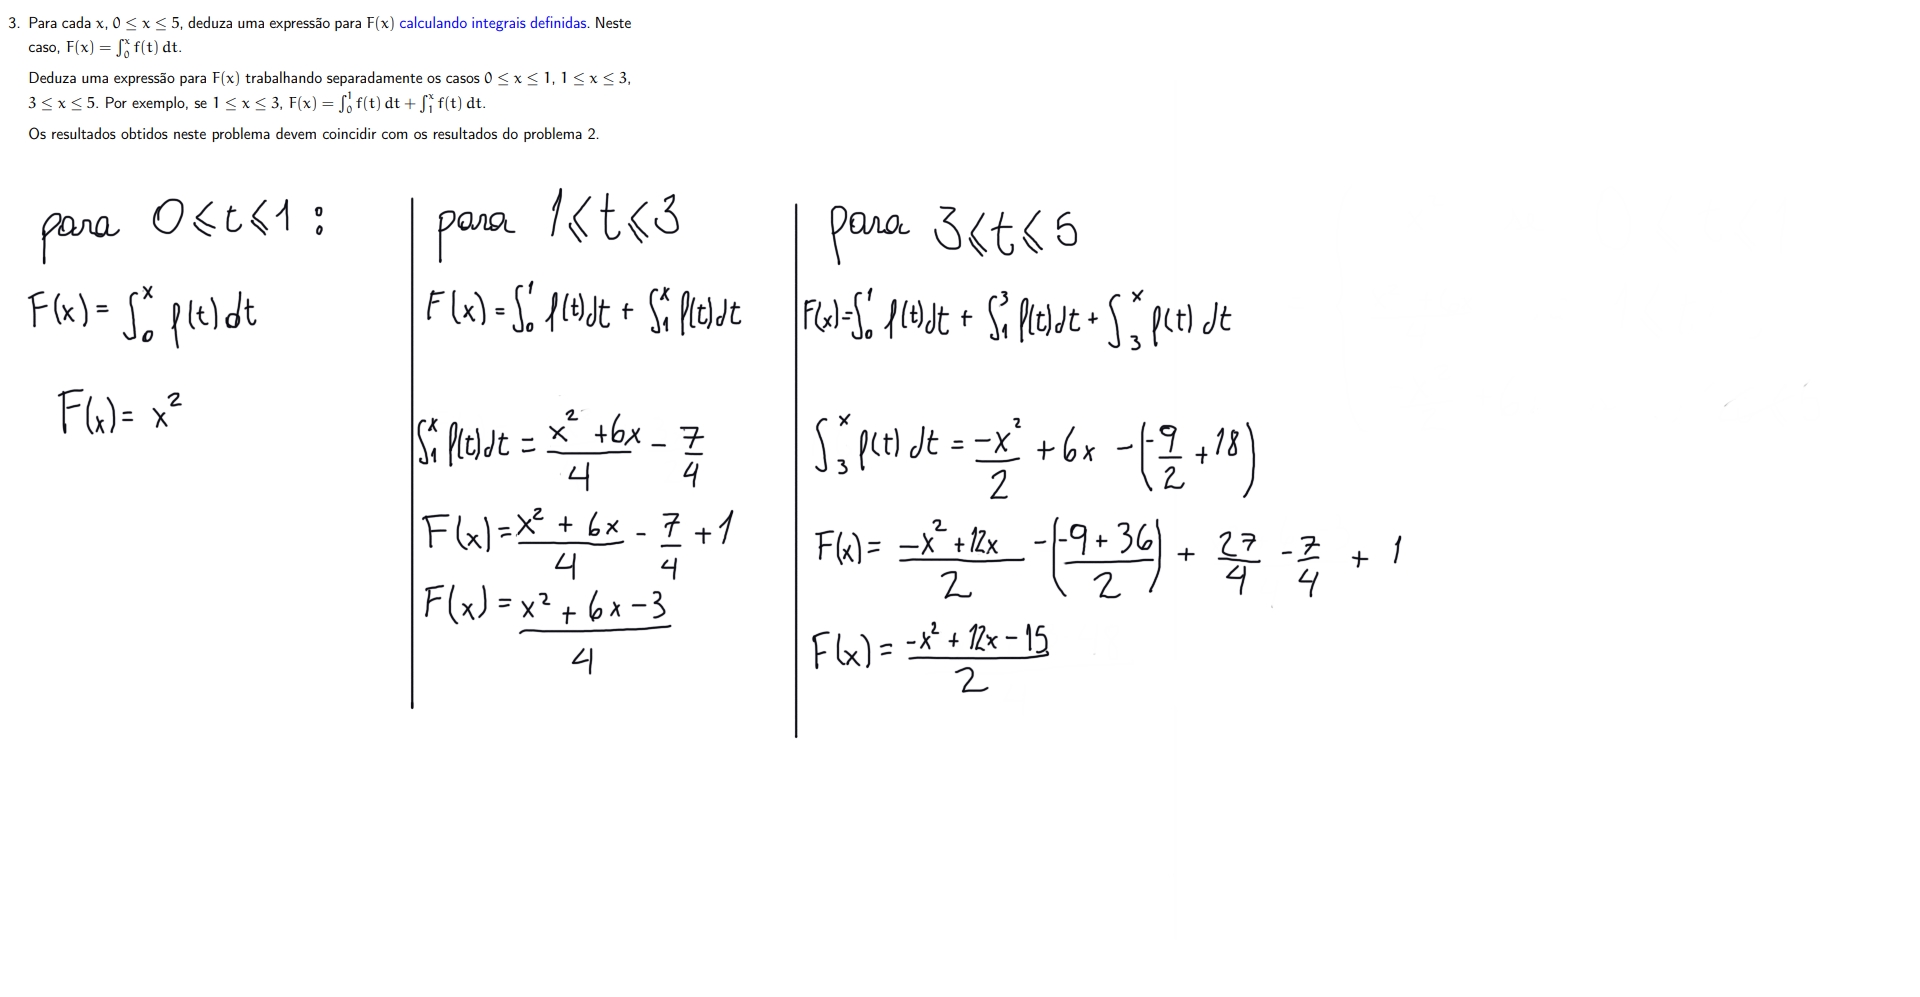 3. Para cada x, 0 ≤ x ≤ 5, deduza uma expressão para F(x) calculando integrais definidas. Neste
caso, F(x) = ∫₀ˣ f(t) dt.
Deduza uma expressão para F(x) trabalhando separadamente os casos 0 ≤ x ≤ 1, 1 ≤ x ≤ 3,
3 ≤ x ≤ 5. Por exemplo, se 1 ≤ x ≤ 3, F(x) = ∫₀¹ f(t) dt + ∫₁ˣ f(t) dt.
Os resultados obtidos neste problema devem coincidir com os resultados do problema 2.
para 0 ≤ t ≤ 1 :
F(x) = ∫₀ˣ f(t) dt
F(x) = x²
para 1 ≤ t ≤ 3
F(x) = ∫₀¹ f(t)dt + ∫₁ˣ f(t)dt
∫₁ˣ f(t)dt = (x² + 6x)/4 - 7/4
F(x) = (x² + 6x)/4 - 7/4 + 1
F(x) = (x² + 6x - 3)/4
para 3 ≤ t ≤ 5
F(x) = ∫₀¹ f(t)dt + ∫₁³ f(t)dt + ∫₃ˣ f(t) dt
∫₃ˣ f(t) dt = -x²/2 + 6x - (-9/2 + 18)
F(x) = (-x² + 12x)/2 - ((-9 + 36)/2) + 27/4 - 7/4 + 1
F(x) = (-x² + 12x - 15)/2